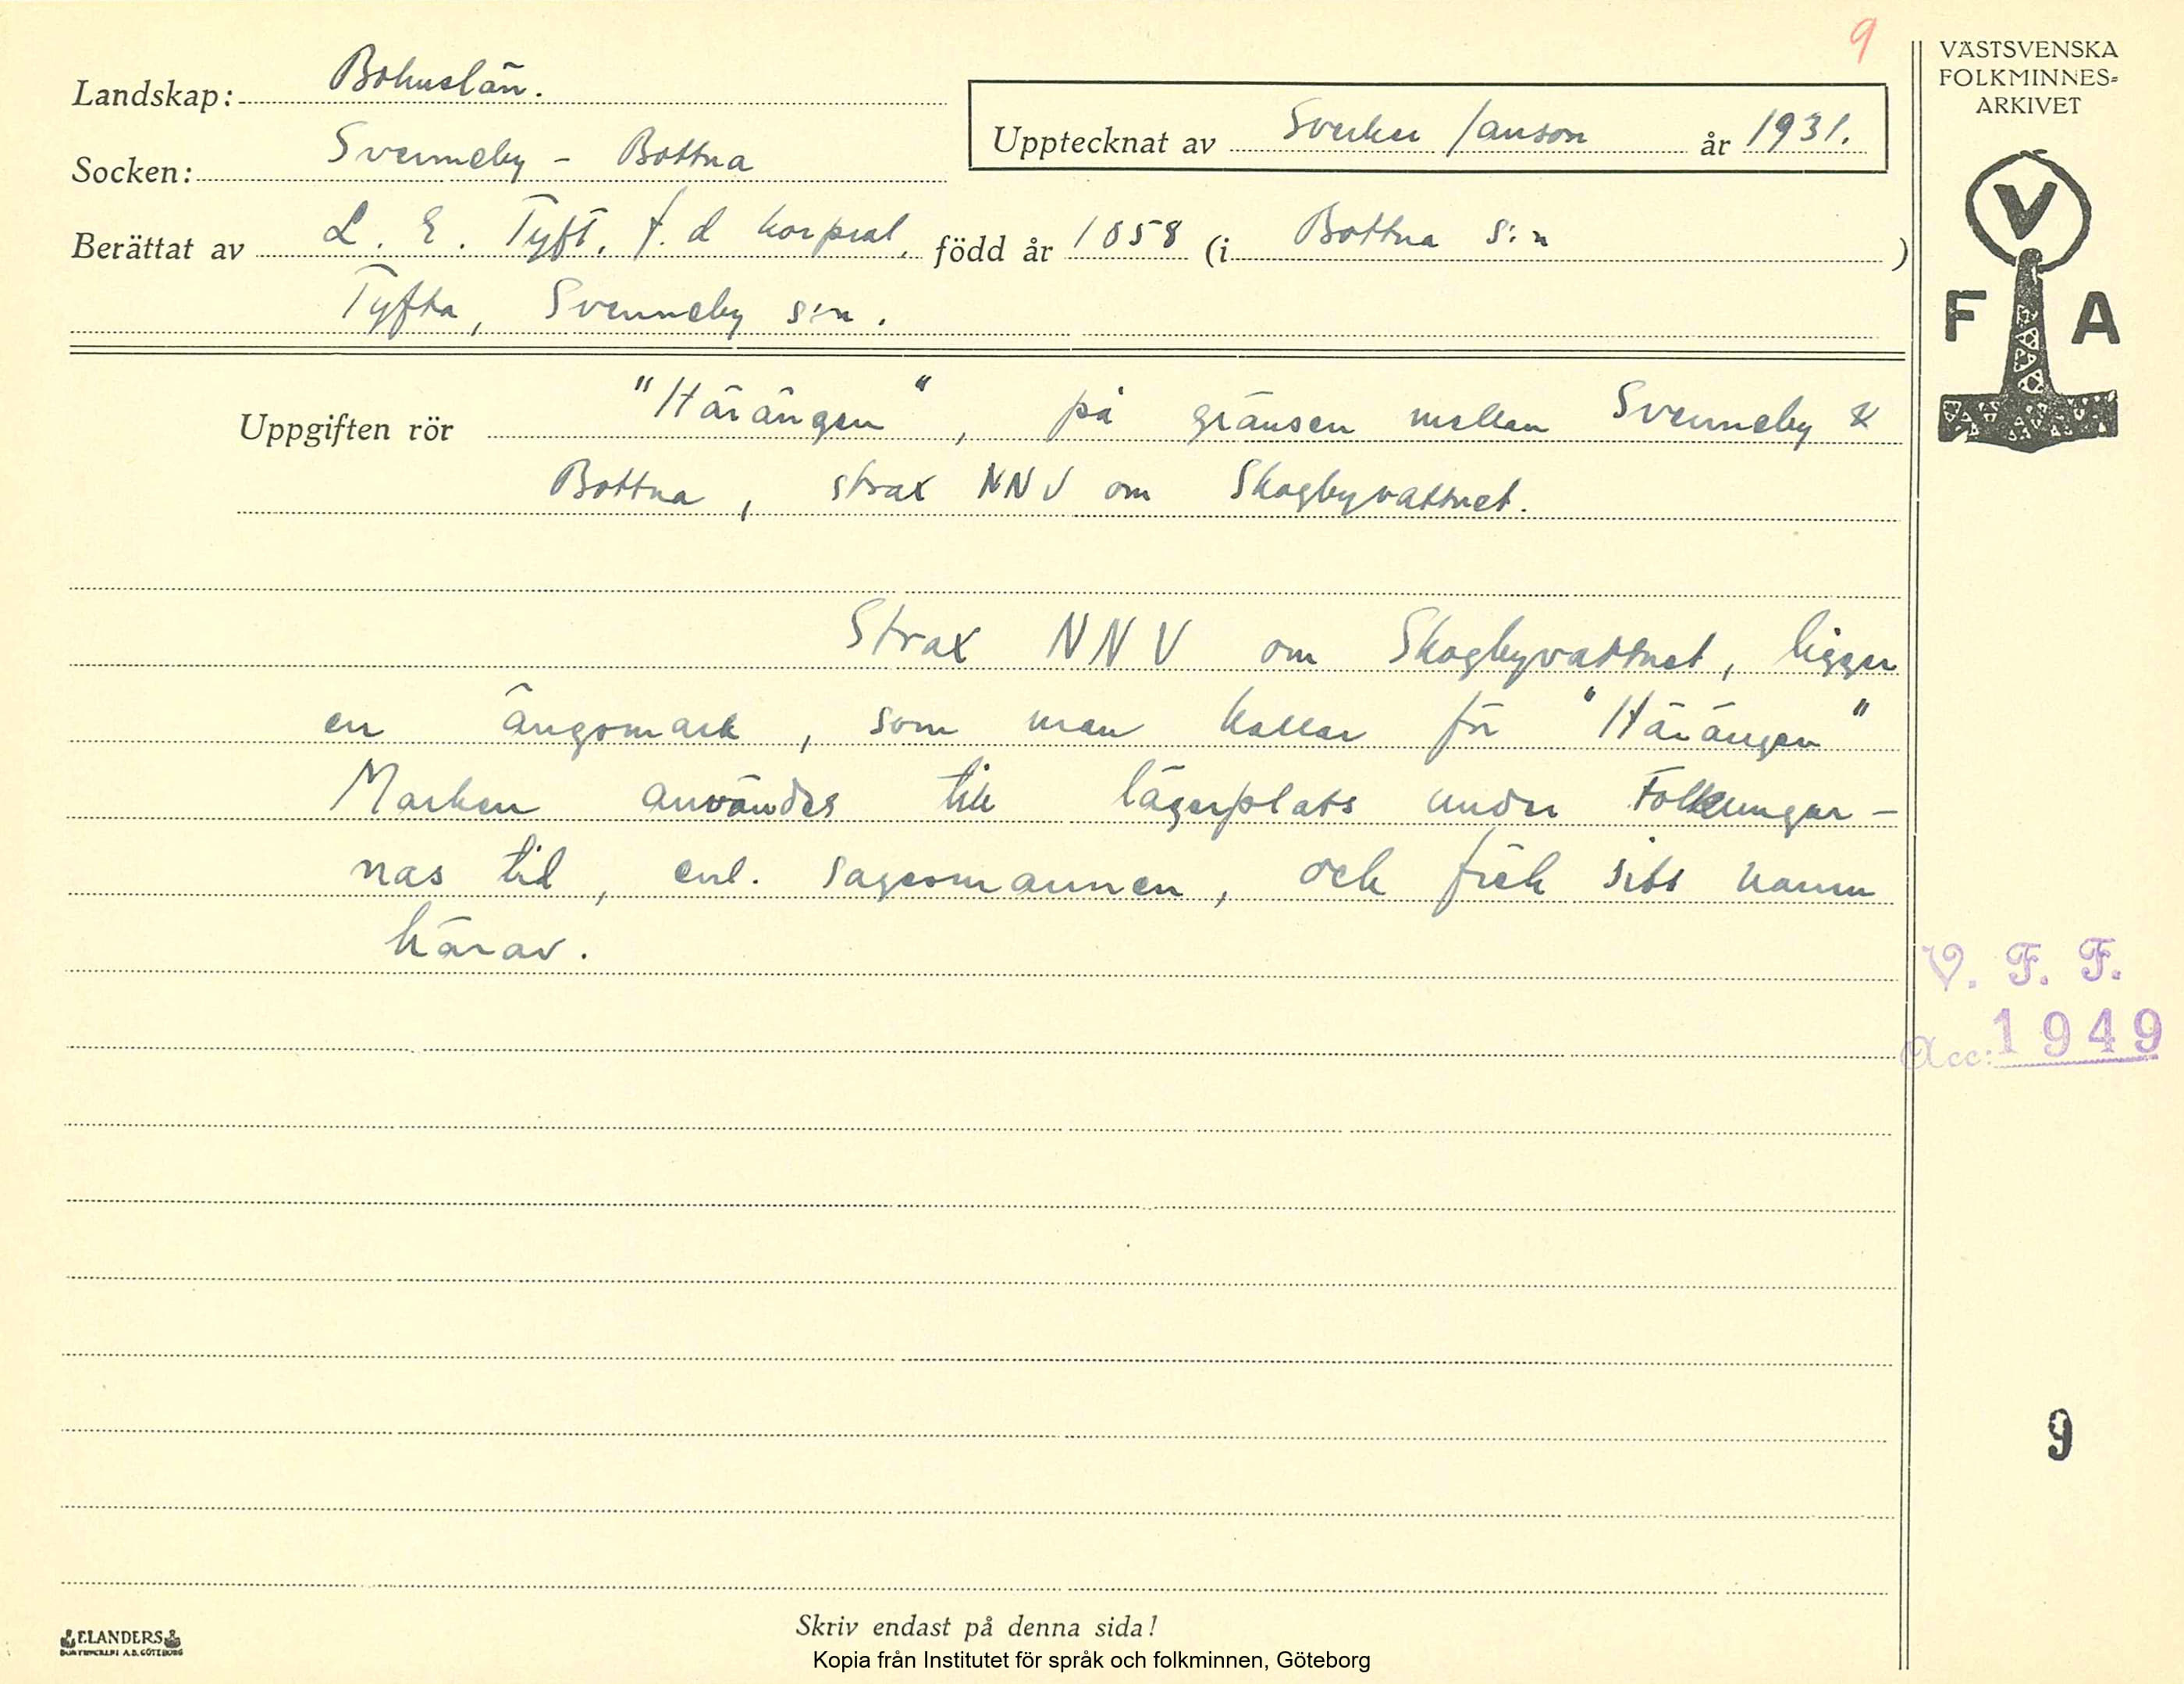 9
VÄSTSVENSKA
FOLKMINNES=
ARKIVET
Landskap: Bohuslän.
Upptecknat av Sverker Janson år 1931.
Socken: Svenneby - Bottna
Berättat av L. E. Tyft, f. d korpral, född år 1858 (i Bottna s:n )
Tyfta, Svenneby s:n.
V
F A
Uppgiften rör "Härängen", på gränsen mellan Svenneby &
Bottna, strax NNV om Skogbyvattnet.
Strax NNV om Skogbyvattnet, ligger
en ängsmark, som man kallar för "Härängen"
Marken användes till lägerplats under Folkungar-
nas tid, enl. sagesmannen, och fick sitt namn
härav.
V. F. F.
Acc: 1949
9
Skriv endast på denna sida!
ELANDERS
BOKTRYCKERI A.B. GÖTEBORG
Kopia från Institutet för språk och folkminnen, Göteborg